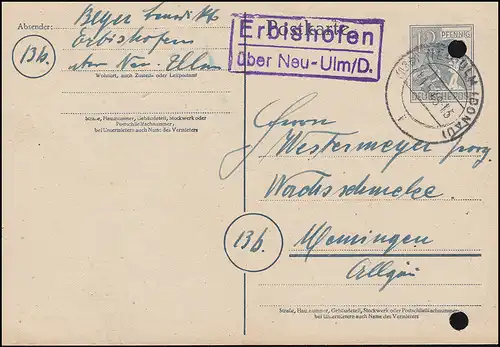 Absender: Beyer Benedikt
13b. Erbishofen
über Neu-Ulm
Wohnort, auch Zustell- oder Leitpostamt
Straße, Hausnummer, Gebäudeteil, Stockwerk oder
Postschließfachnummer;
bei Untermietern auch Name des Vermieters
Postkarte
Erbishofen
über Neu-Ulm/D.
12 PFENNIG
DEUTSCHE POST
ULM (DONAU)
Herrn
Westermeyer Georg
Wachsschmelze
13b. Memmingen
Allgäu
Straße, Hausnummer, Gebäudeteil, Stockwerk oder Postschließfachnummer;
bei Untermietern auch Name des Vermieters